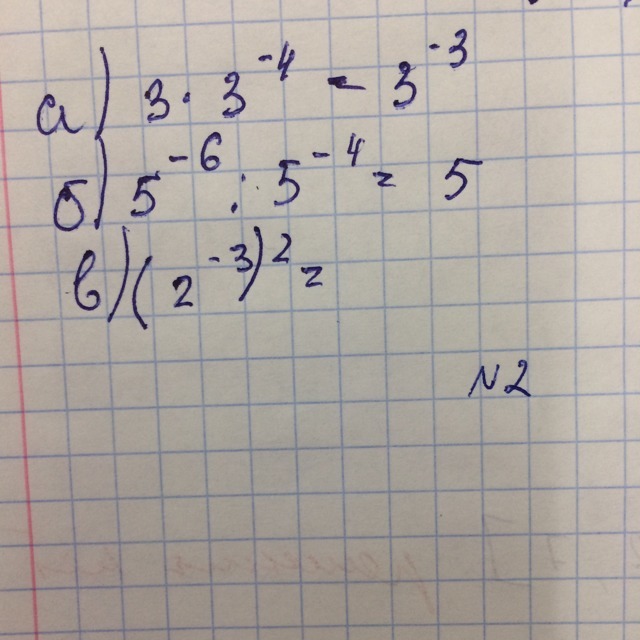 а) 3 · 3⁻⁴ = 3⁻³
б) 5⁻⁶ : 5⁻⁴ = 5
в) (2⁻³)² =
N2